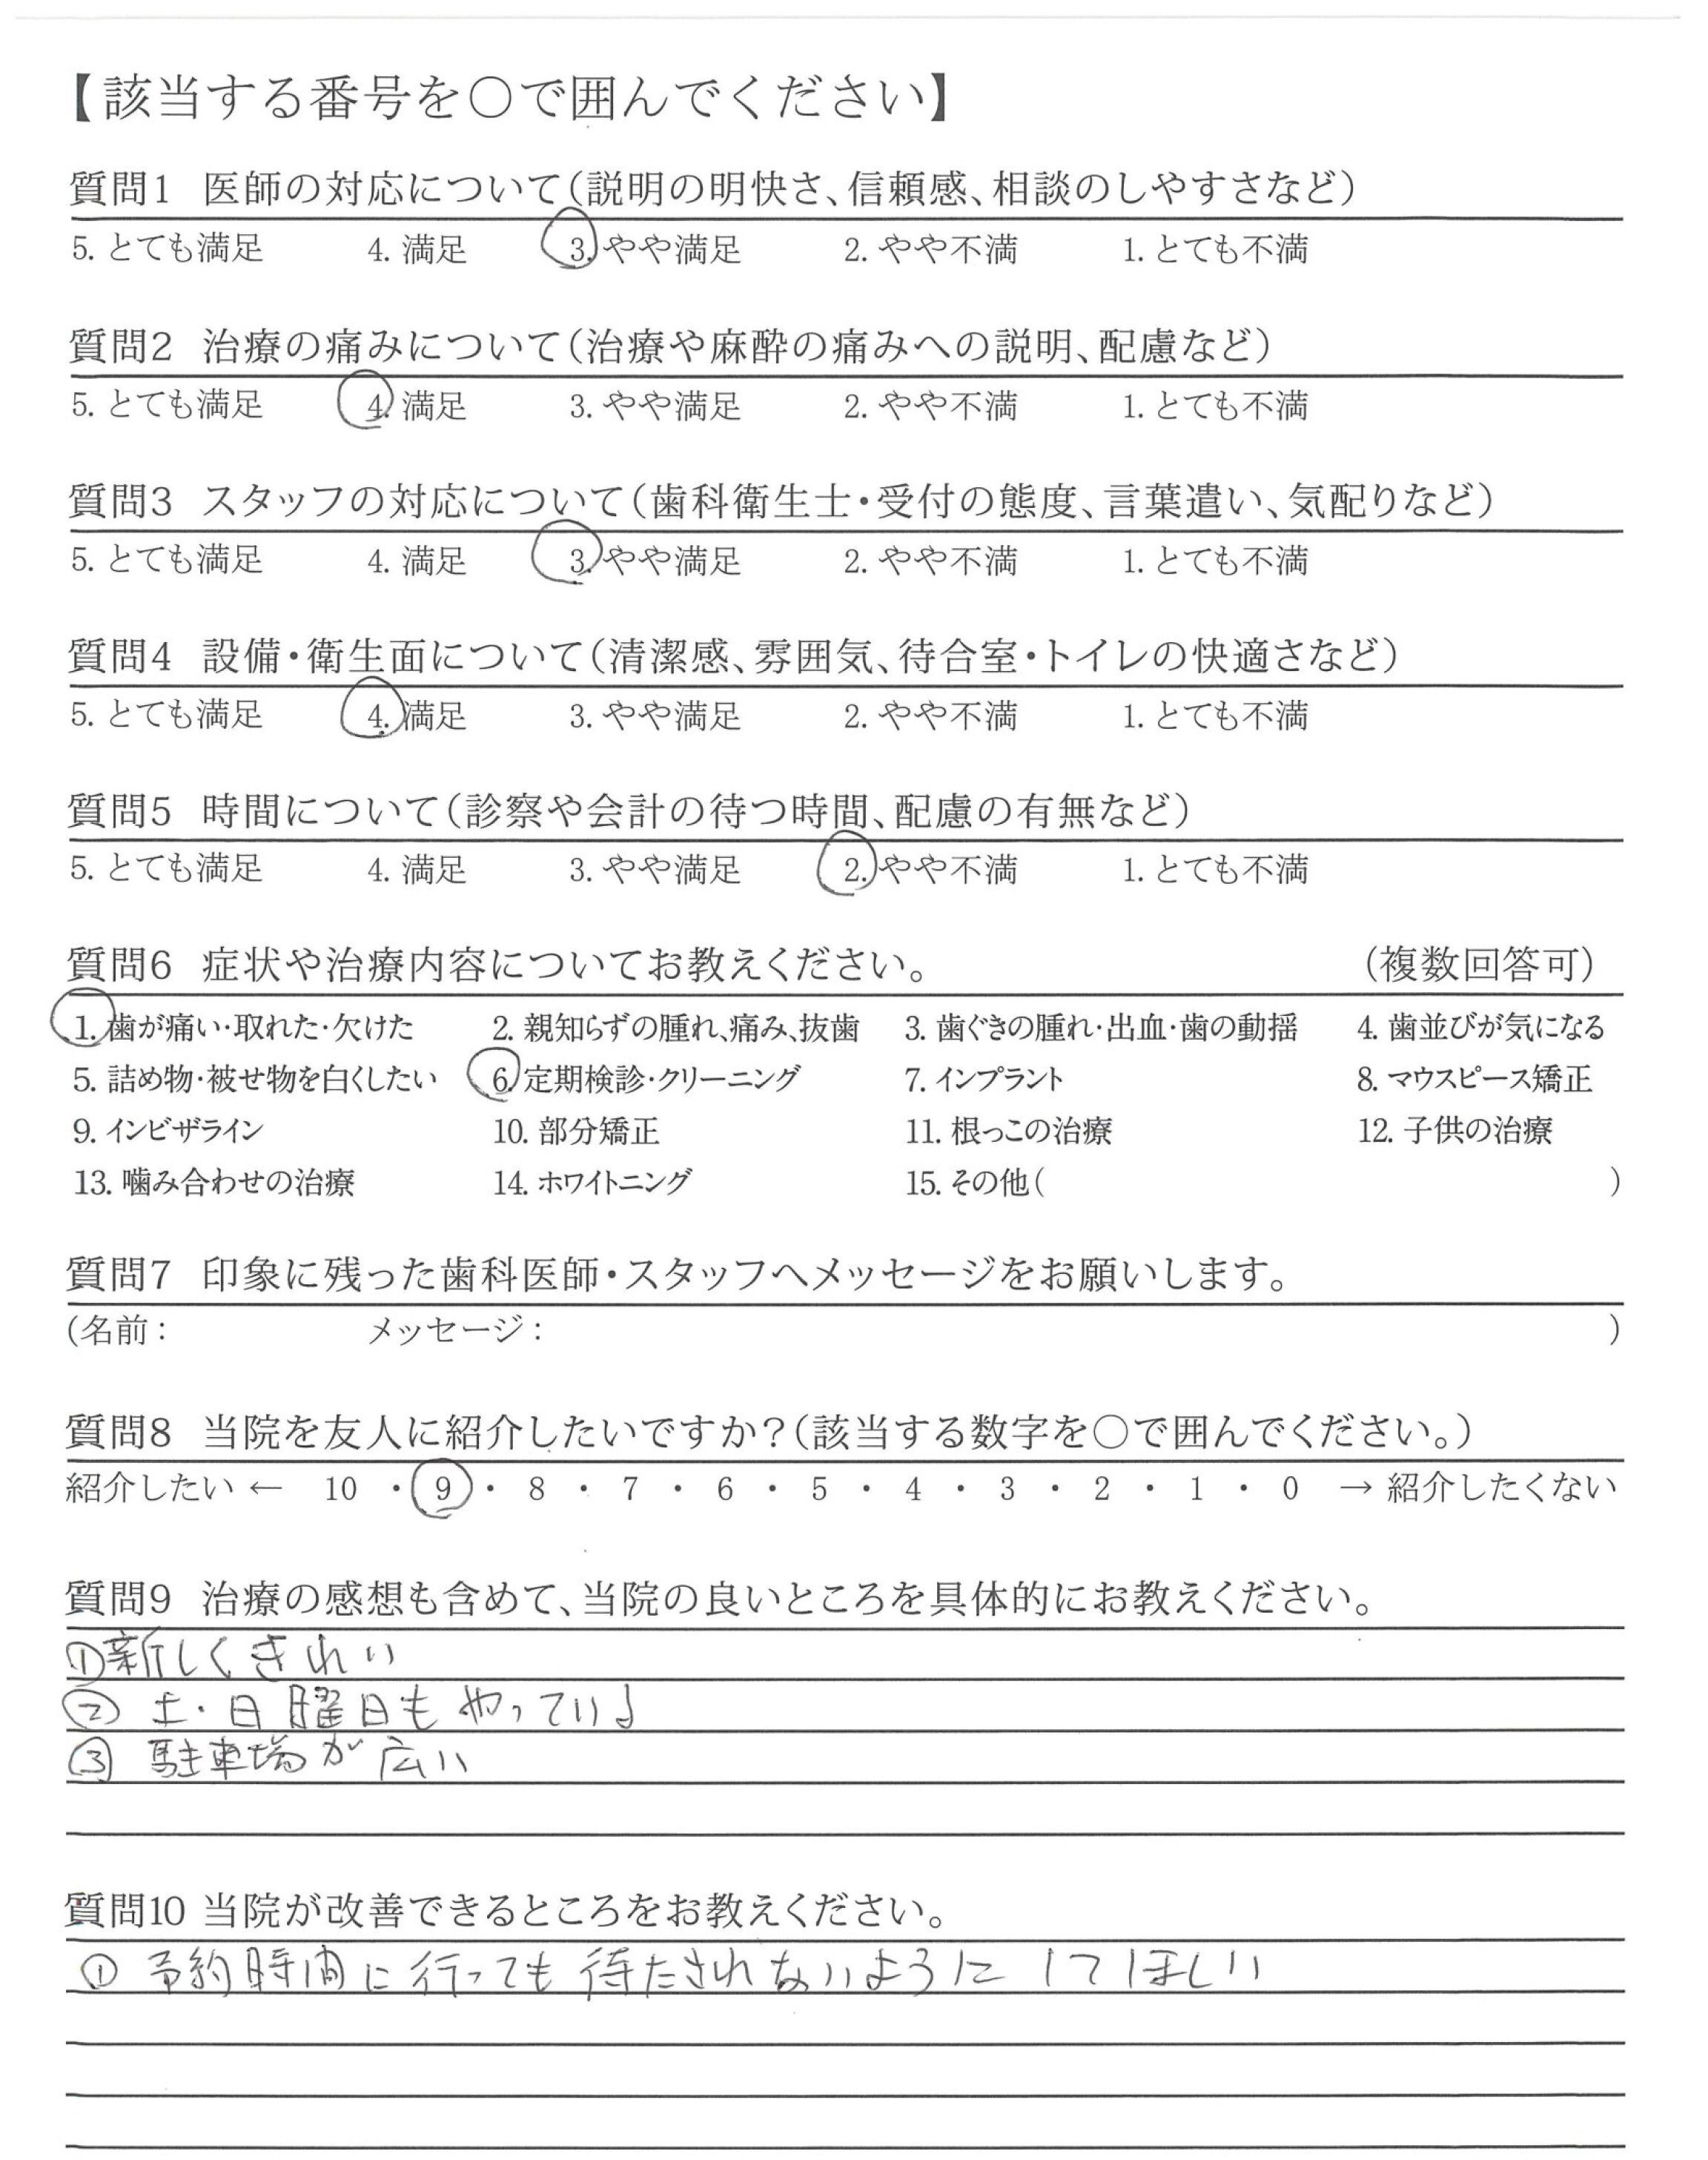 【該当する番号を○で囲んでください】
質問1 医師の対応について(説明の明快さ、信頼感、相談のしやすさなど)
5. とても満足 4. 満足 3. やや満足 2. やや不満 1. とても不満
質問2 治療の痛みについて(治療や麻酔の痛みへの説明、配慮など)
5. とても満足 4. 満足 3. やや満足 2. やや不満 1. とても不満
質問3 スタッフの対応について(歯科衛生士・受付の態度、言葉遣い、気配りなど)
5. とても満足 4. 満足 3. やや満足 2. やや不満 1. とても不満
質問4 設備・衛生面について(清潔感、雰囲気、待合室・トイレの快適さなど)
5. とても満足 4. 満足 3. やや満足 2. やや不満 1. とても不満
質問5 時間について(診察や会計の待つ時間、配慮の有無など)
5. とても満足 4. 満足 3. やや満足 2. やや不満 1. とても不満
質問6 症状や治療内容についてお教えください。 (複数回答可)
1. 歯が痛い・取れた・欠けた 2. 親知らずの腫れ、痛み、抜歯 3. 歯ぐきの腫れ・出血・歯の動揺 4. 歯並びが気になる
5. 詰め物・被せ物を白くしたい 6. 定期検診・クリーニング 7. インプラント 8. マウスピース矯正
9. インビザライン 10. 部分矯正 11. 根っこの治療 12. 子供の治療
13. 噛み合わせの治療 14. ホワイトニング 15. その他( )
質問7 印象に残った歯科医師・スタッフへメッセージをお願いします。
(名前: メッセージ: )
質問8 当院を友人に紹介したいですか?(該当する数字を○で囲んでください。)
紹介したい ← 10 ・ 9 ・ 8 ・ 7 ・ 6 ・ 5 ・ 4 ・ 3 ・ 2 ・ 1 ・ 0 → 紹介したくない
質問9 治療の感想も含めて、当院の良いところを具体的にお教えください。
①新しくきれい
② 土・日曜日もやっている
③ 駐車場が広い
質問10 当院が改善できるところをお教えください。
① 予約時間に行っても待たされないようにしてほしい